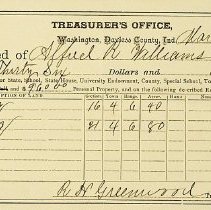 TREASURER'S OFFICE,
Washington, Daviess County, Ind. Mar
ed of Alfred R Williams
Thirty Six Dollars and
or State, School, State House, University Endowment, County, Special School, Tow
and $96000 Personal Property, and on the following de-cribed R
RIPTION OF LAND
16 4 6 40
21 4 6 80
R. H. Greenwood